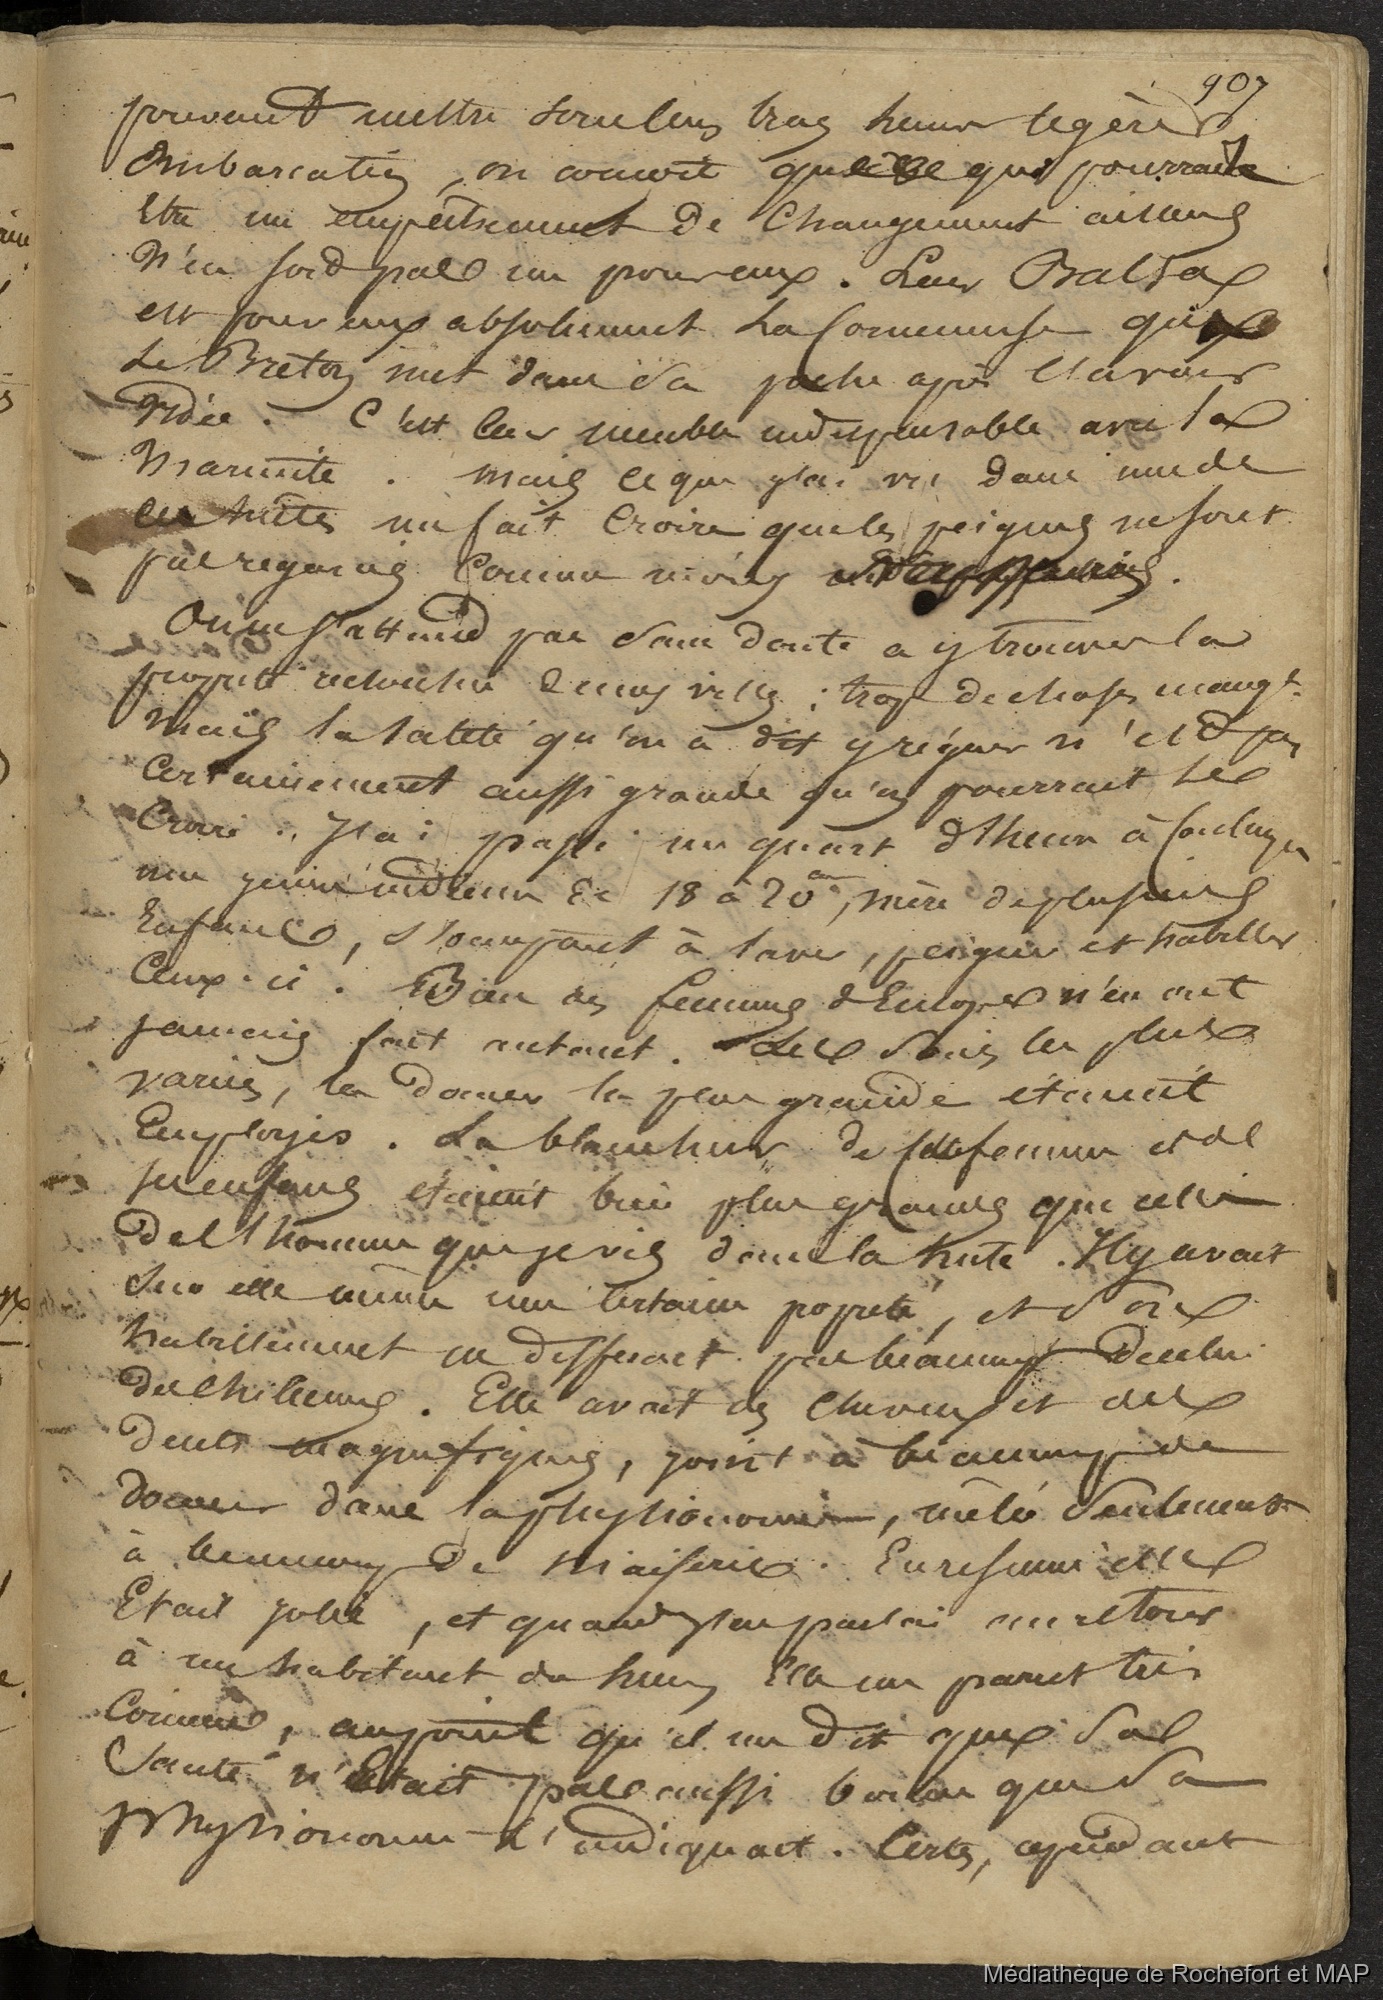 907
pouvant mettre sous leurs bras leur légère
Embarcation, on conçoit que ce qui pourrait
Etre un empêchement de changement ailleurs
N'en soit pas un pour eux. Leur Balsa
est pour eux absolument la Cornemuse que
Le Breton met dans sa poche après l'avoir
vidée. C'est leur meuble indispensable avec la
Marmite. Mais ce que j'ai vu dans une de
ces huttes me fait Croire que les peignes ne sont
pas regardés comme moins
On ne s'attend pas sans doute a y trouver la
propreté recherchée de nos villes; trop de choses manqt.
Mais la saleté qu'on a dit y régner n'est pas
Certainement aussi grande qu'on pourrait le
Croire. J'ai passé un quart d'heure à
une jeune indienne de 18 à 20 ans, mère de plusieurs
Enfans, s'occupant à laver, peigner et habiller
Ceux-ci. Bien des femmes d'Europe n'en ont
jamais fait autant. Les soins les plus
variés, la douceur la plus grande étaient
Employés. La blancheur de cette femme et de
ses enfans étaient bien plus grandes que celle
de l'homme que je vis dans la hutte. Il y avait
sur elle même une certaine popreté, et son
habillement ne differait pas beaucoup de celui
des Chiliennes. Elle avait des cheveux et des
dents magnifiques, joint à beaucoup de
douceur dans la physionomie, mêlée seulement
à beaucoup de niaiserie. En resumé elle
Etait jolie, et quand j'en parlai au retour
à un habitant du lieu, Elle me parut très
Connue, au point qu'il me dit que sa
Santé n'était pas aussi bonne que sa
physionomie l'indiquait. Certes, cependant
Médiathèque de Rochefort et MAP